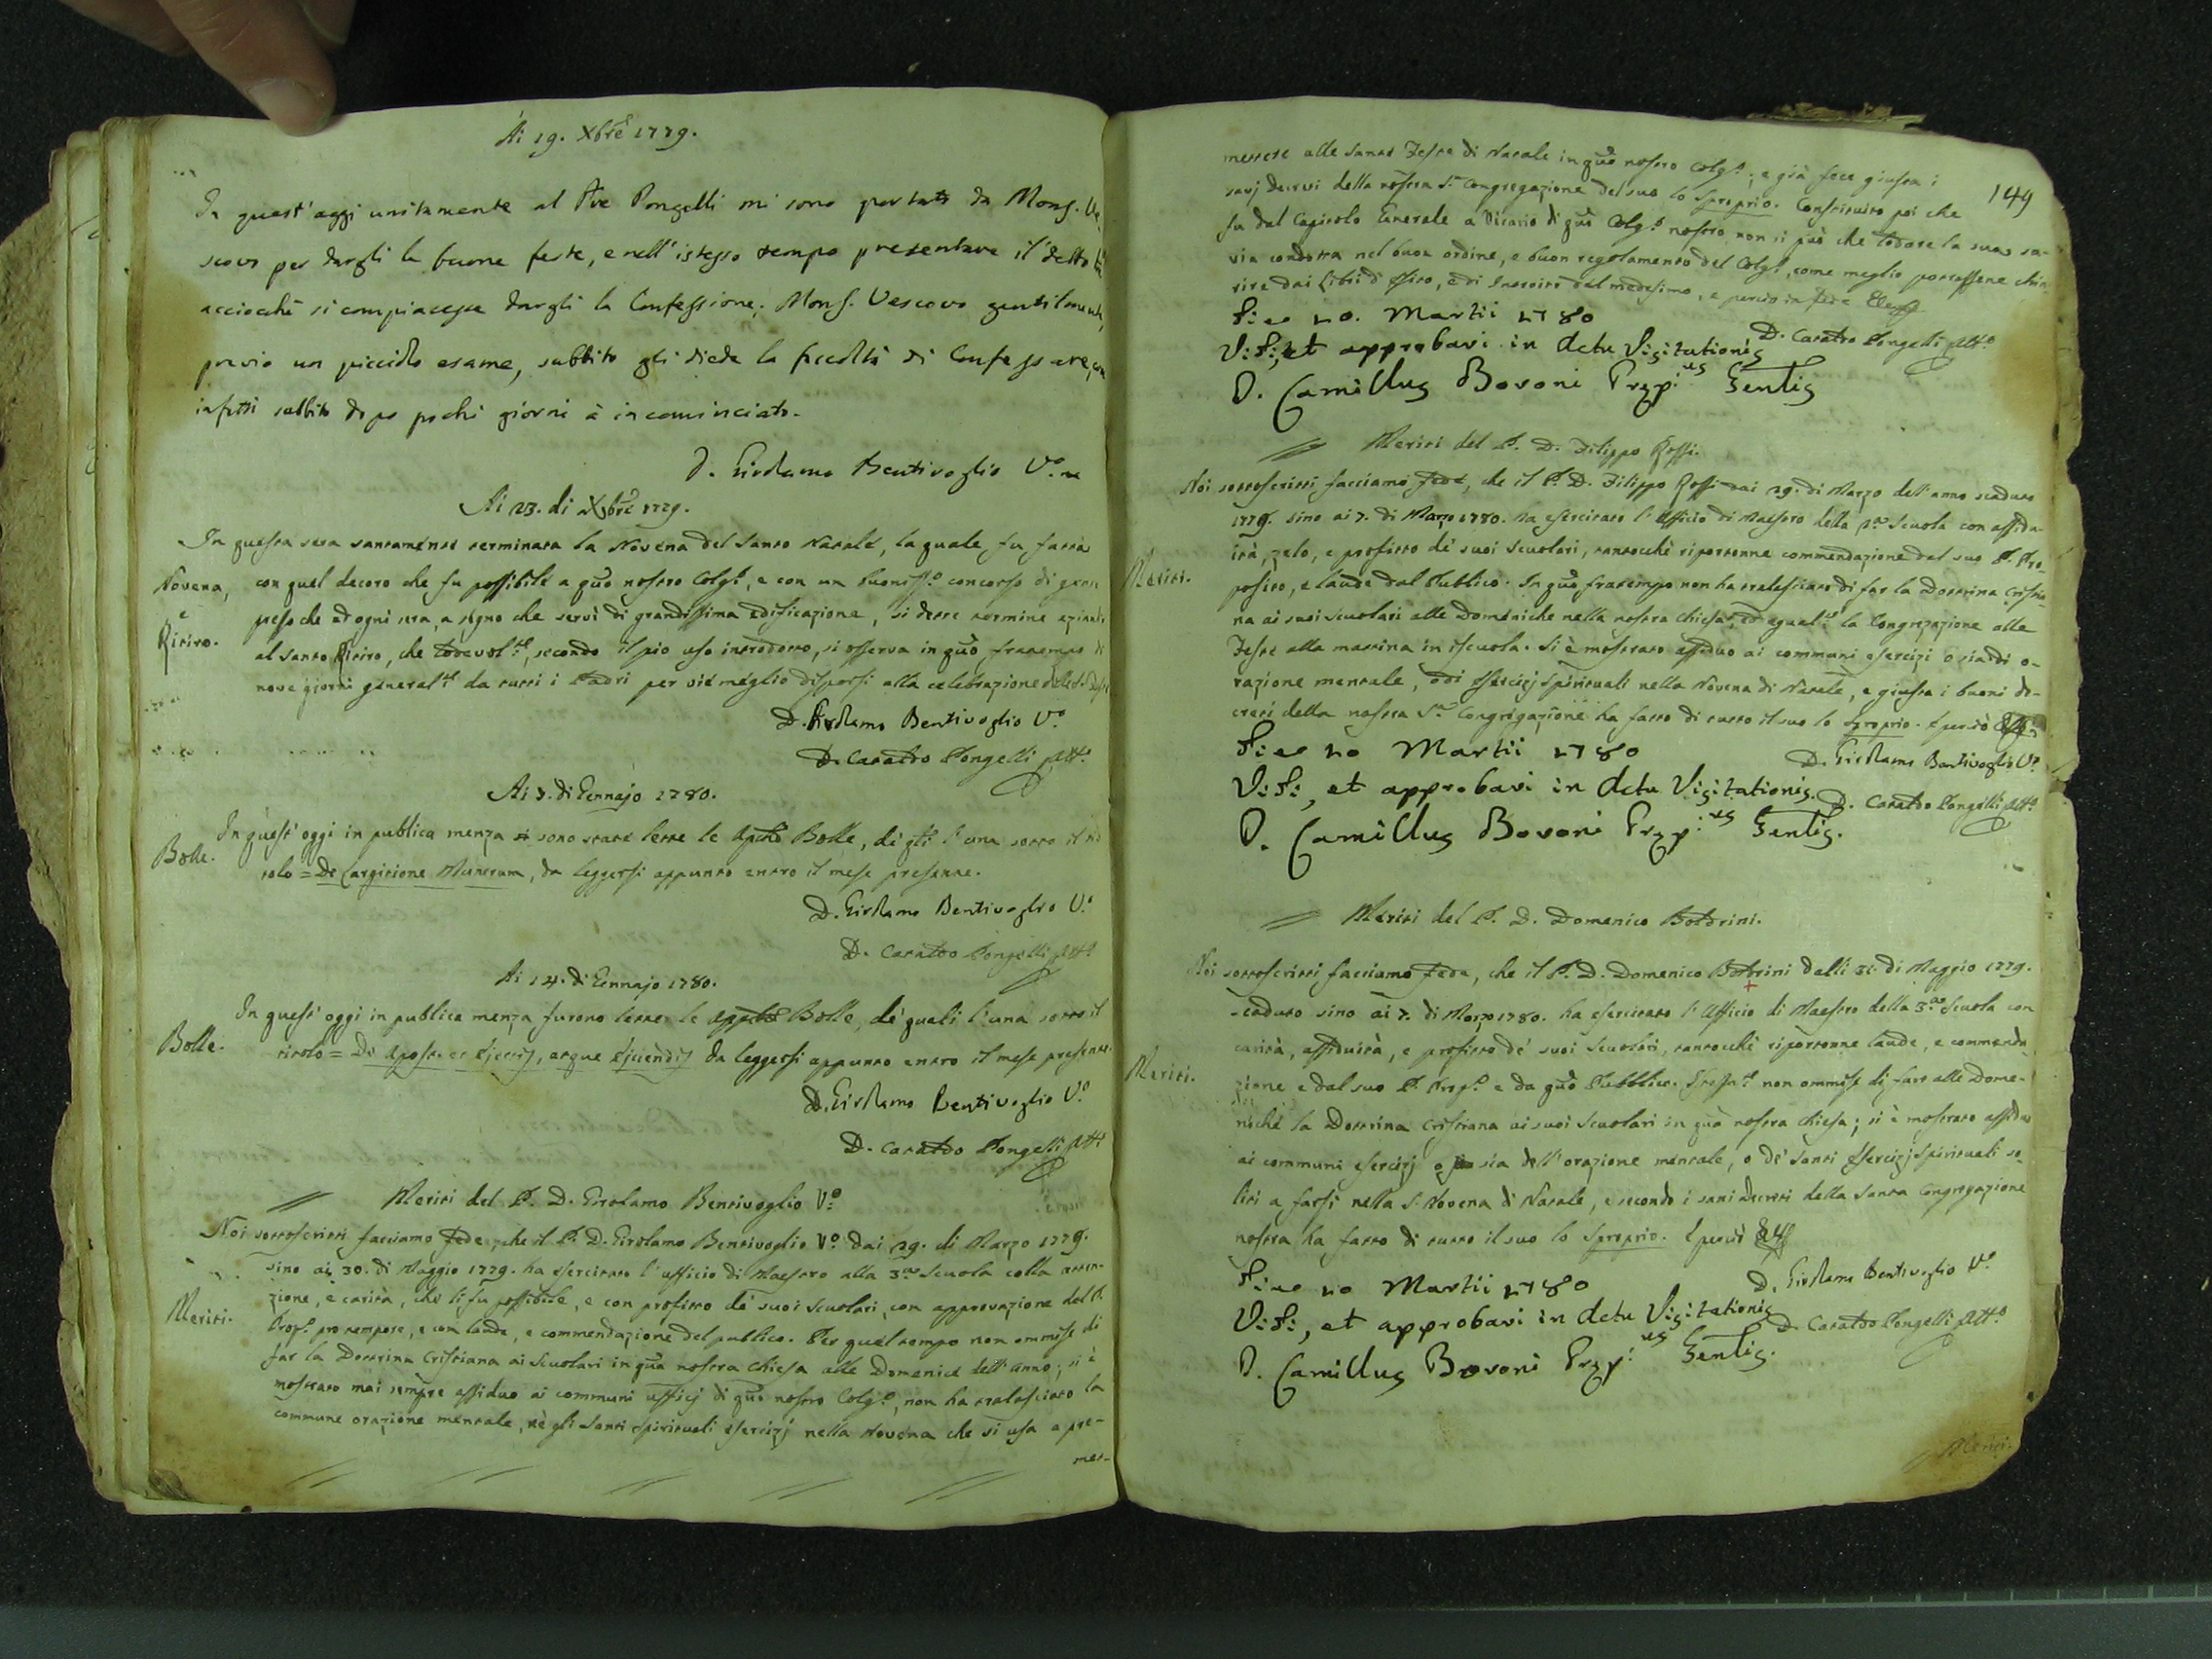 Ai 19. Xbre 1779.
In quest'oggi unitamente al Pre Pongelli mi sono portato da Mons. Ve-
scovo per dargli le buone feste, e nell'istesso tempo presentare il detto
acciocchè si compiacesse dargli la Confessione; Mons. Vescovo gentilmente,
previo un picciolo esame, subbito gli diede la facoltà di Confessare,
infatti subbito dopo pochi giorni à incominciato.
D. Girolamo Bentivoglio Vo.
Ai 23. di Xbre 1779.
In questa sera santamente terminata la Novena del Santo Natale, la quale fu fatta
Novena,
e
Ritiro.
con quel decoro che fu possibile a qūo nostro Colgo, e con un buonisso concorso di gran
presso che ad ogni sera, a segno che servì di grandissima edificazione, si dette termine
al santo Ritiro, che lodevolte, secondo il pio uso introdotto, si osserva in qūo frattempo di
nove giorni generalte da tutti i Padri per vie meglio disporsi alla celebrazione
D. Girolamo Bentivoglio Vo
D. Cataldo Pongelli Atto
Ai 7. di Gennajo 1780.
Bolle.
In quest'oggi in publica menza sono state lette le Bolle, de' qli l'una sotto il ti-
tolo = De Largitione Munerum, da leggersi appunto entro il mese presente.
D. Girolamo Bentivoglio Vo
D. Cataldo Pongelli Atto
Ai 14. di Gennajo 1780.
Bolle.
In quest'oggi in publica menza furono lette le Bolle, de' quali l'una sotto il
titolo = De Apost. et Ejectis, atque Ejiciendis da leggersi appunto entro il mese presente.
D. Girolamo Bentivoglio Vo
D. Cataldo Pongelli Atto
Meriti del P. D. Girolamo Bentivoglio Vo
Noi sottoscritti facciamo fede, che il P. D. Girolamo Bentivoglio Vo dai 29. di Marzo 1779.
sino ai 30. di Maggio 1779. ha esercitato l'ufficio di Maestro alla 3a Scuola colla atten-
Meriti.
zione, e carità, che li fu possibile, e con profitto de' suoi Scolari, con approvazione del P.
Propo pro tempore, e con laude, e commendazione del publico. Per quel tempo non ommise di
far la Dottrina Cristiana ai Scuolari in qūa nostra Chiesa alle Domenica dell'anno; si è
mostrato mai sempre assiduo ai communi ufficj di qūo nostro Colgo, non ha tralasciato la
commune orazione mentale, nè gli Santi Spirituali esercizj nella Novena che si usa a pre-
met-
149
mettere alle Sante Feste di Natale in qūo nostro Colgo; e già fece giusta i
savj decreti della nostra Sa Congregazione del suo lo Sproprio. Constituito poi che
fu dal Capitolo Generale a Vicario di qūo Colgo nostro, non si può che lodare la sua sa-
via condotta nel buon ordine, e buon regolamento del Colgo, come meglio potrassene chia-
rire dai Libri d'Esito, e di Introito del medesimo, e perciò in fede
Die 20. Martii 1780
D. Cataldo Pongelli Atto
Visi, et approbavi in Actu Visitationis
D. Camillus Bovoni Præpus Genlis
Meriti del P. D. Filippo Rossi.
Noi sottoscritti facciamo fede, che il P. D. Filippo Rossi dai 29. di Marzo dell'anno scaduto
1779. sino ai 7. di Marzo 1780. ha esercitato l'Ufficio di Maestro della 2a Scuola con assidu-
Meriti.
ità, zelo, e profitto de' suoi Scuolari, tantocchè riportonne commendazione dal suo P. Pro-
posito, e laude dal Publico. In qūo frattempo non ha tralasciato di far la Dottrina Cristia-
na ai suoi Scuolari alle Domeniche nella nostra Chiesa, ed egualte la Congregazione alle
Feste alla mattina in iscuola. Si è mostrato assiduo ai communi esercizi o sia di o-
razione mentale, o di Esercizj Spirituali nella Novena di Natale, e giusta i buoni de-
creti della nostra Sa Congregazione ha fatto di tutto il suo lo Sproprio. E perciò
Die 20 Martii 1780
D. Girolamo Bentivoglio Vo
Visi, et approbavi in Actu Visitationis.
D. Cataldo Pongelli Atto
D. Camillus Bovoni Præpus Genlis.
Meriti del P. D. Domenico Boldrini.
Noi sottoscritti facciamo fede, che il P. D. Domenico Boldrini dalli 31. di Maggio 1779.
scaduto sino ai 7. di Marzo 1780. ha esercitato l'Ufficio di Maestro della 3a Scuola con
Meriti.
carità, assiduità, e profitto de' suoi Scuolari, tantocchè riportonne laude, e commenda-
zione e dal suo P. Propo e da qūo Pubblico. non ommise di fare alle Dome-
niche la Dottrina Cristiana ai suoi Scuolari in qūa nostra Chiesa; si è mostrato assiduo
ai communi esercizj o sia dell'orazione mentale, o de' Santi Esercizj Spirituali so-
liti a farsi nella S. Novena di Natale, e secondo i sani decreti della Santa Congregazione
nostra ha fatto di tutto il suo lo Sproprio. E perciò
Die 20 Martii 1780
D. Girolamo Bentivoglio Vo
Visi, et approbavi in Actu Visitationis
D. Cataldo Pongelli Atto
D. Camillus Bovoni Præpus Genlis.
Meriti.